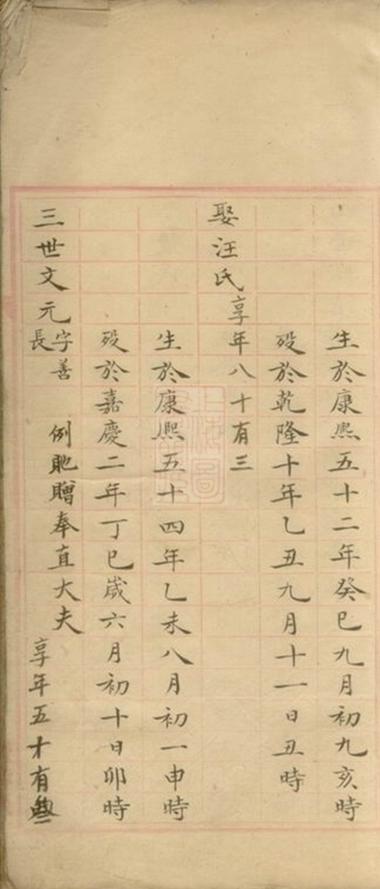 生於康熙五十二年癸巳九月初九亥時
歿於乾隆十年乙丑九月十一日丑時
娶汪氏享年八十有三
生於康熙五十四年乙未八月初一申時
歿於嘉慶二年丁巳歲六月初十日卯時
三世文元字善長 例貤贈奉直大夫 享年五十有